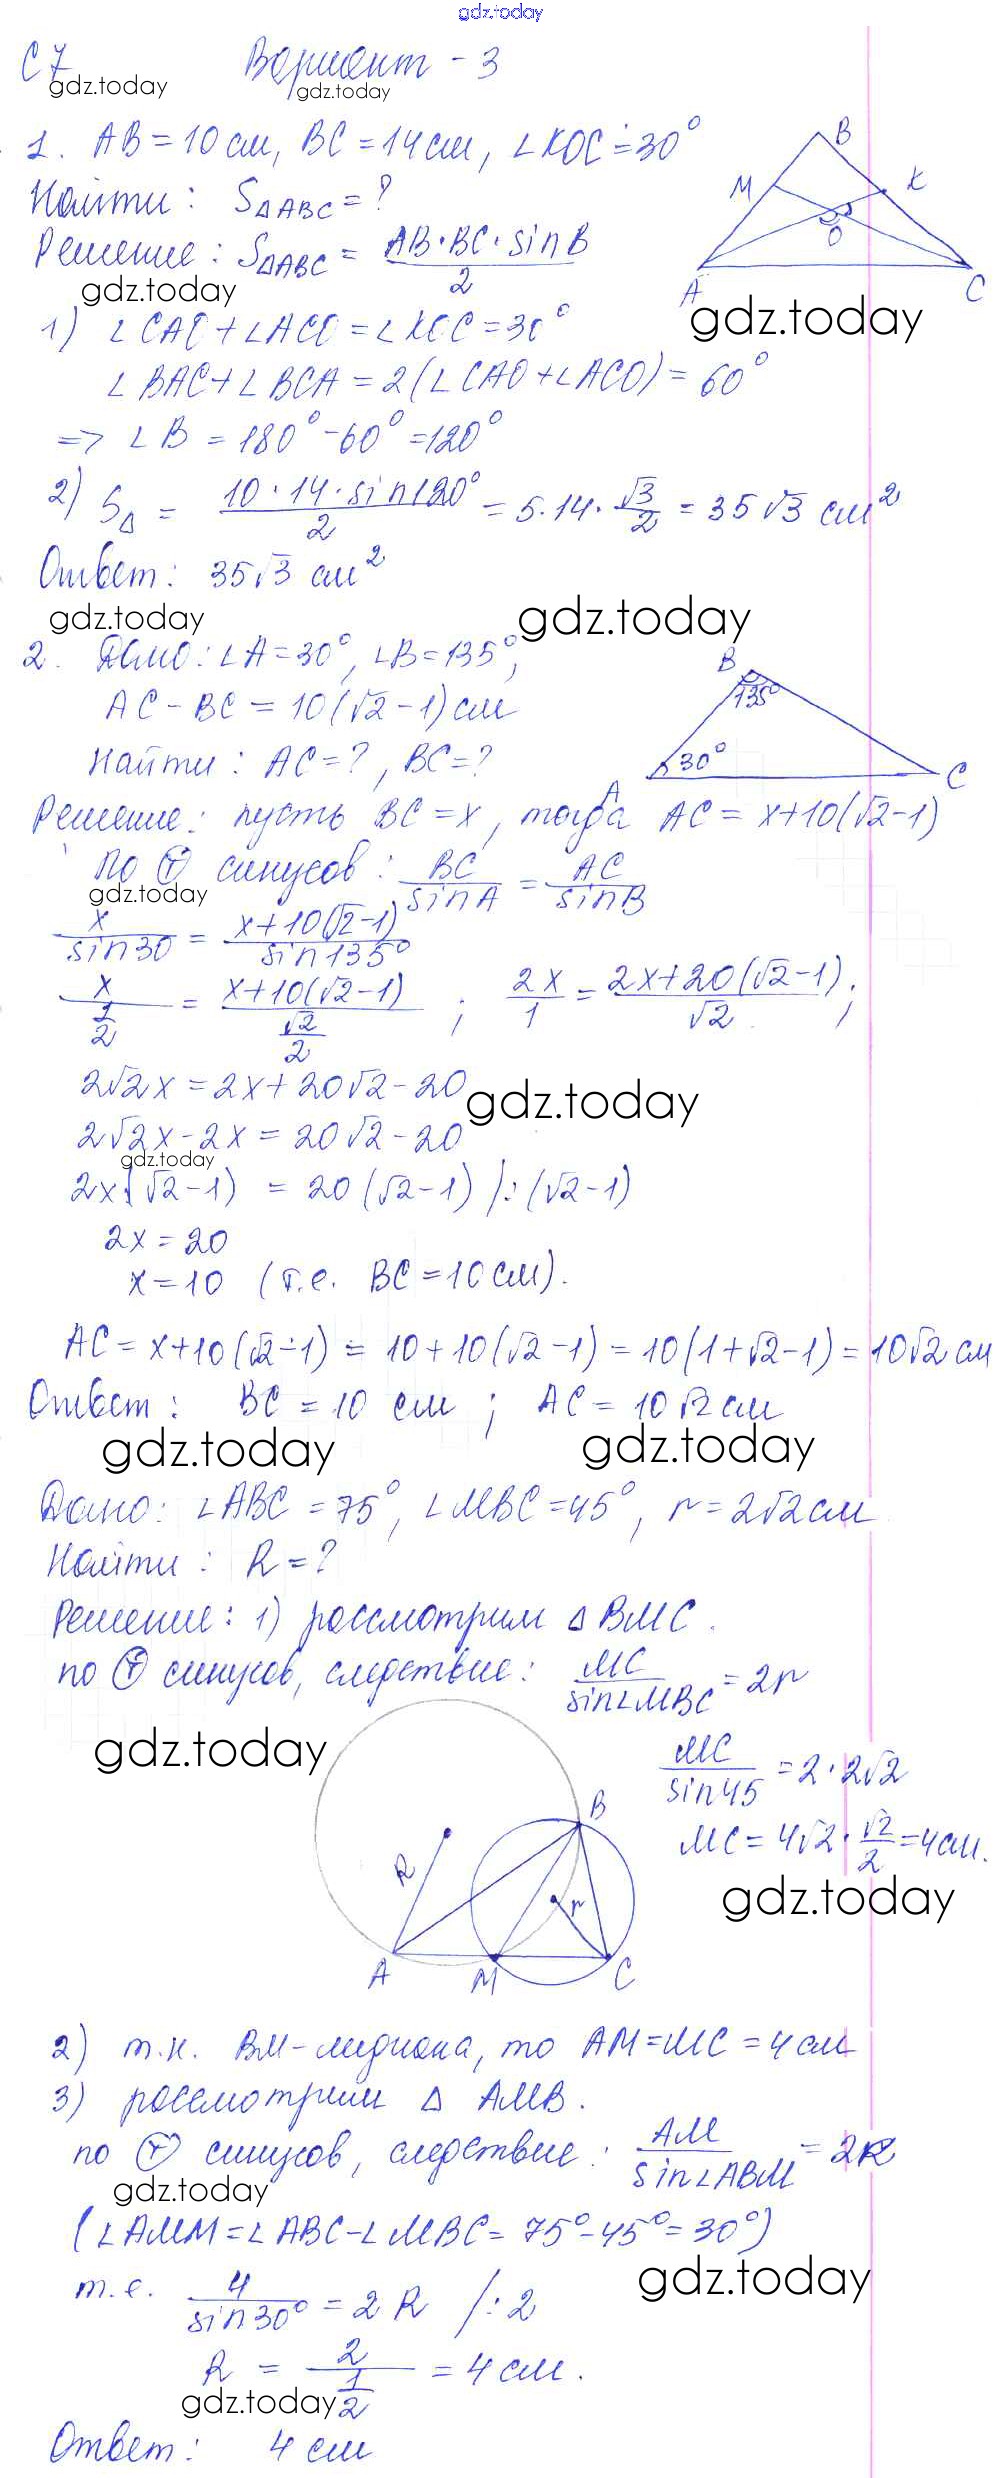 gdz.today
С7 Вариант - 3
gdz.today gdz.today
1. AB = 10 см, BC = 14 см, ∠KOC = 30°
Найти: S△ABC = ?
Решение: S△ABC = AB·BC·sin B / 2
B
M K
O
A C
gdz.today gdz.today
1) ∠CAO + ∠ACO = ∠KOC = 30°
∠BAC + ∠BCA = 2(∠CAO + ∠ACO) = 60°
=> ∠B = 180° - 60° = 120°
2) S△ = 10·14·sin 120° / 2 = 5·14·√3/2 = 35√3 см²
Ответ: 35√3 см²
gdz.today gdz.today
2. Дано: ∠A = 30°, ∠B = 135°,
AC - BC = 10(√2 - 1) см
Найти: AC = ?, BC = ?
B
135°
30°
A C
Решение: пусть BC = x, тогда AC = x + 10(√2 - 1)
По Ⓣ синусов: BC / sin A = AC / sin B
gdz.today
x / sin 30 = x + 10(√2 - 1) / sin 135°
x / 1/2 = x + 10(√2 - 1) / √2/2 ; 2x / 1 = 2x + 20(√2 - 1) / √2 ;
2√2x = 2x + 20√2 - 20
gdz.today
2√2x - 2x = 20√2 - 20
gdz.today
2x(√2 - 1) = 20(√2 - 1) /:(√2 - 1)
2x = 20
x = 10 (т.е. BC = 10 см).
AC = x + 10(√2 - 1) = 10 + 10(√2 - 1) = 10(1 + √2 - 1) = 10√2 см
Ответ: BC = 10 см ; AC = 10√2 см
gdz.today gdz.today
Дано: ∠ABC = 75°, ∠MBC = 45°, r = 2√2 см
Найти: R = ?
Решение: 1) рассмотрим △BMC.
по Ⓣ синусов, следствие: MC / sin∠MBC = 2r
gdz.today
MC / sin 45 = 2·2√2
MC = 4√2·√2/2 = 4 см.
gdz.today
B
R r
A M C
2) т.к. BM - медиана, то AM = MC = 4 см
3) рассмотрим △ AMB.
по Ⓣ синусов, следствие: AM / sin∠ABM = 2R
gdz.today
(∠AMM = ∠ABC - ∠MBC = 75° - 45° = 30°)
gdz.today
т.е. 4 / sin 30° = 2R /:2
R = 2 / 1/2 = 4 см.
gdz.today
Ответ: 4 см